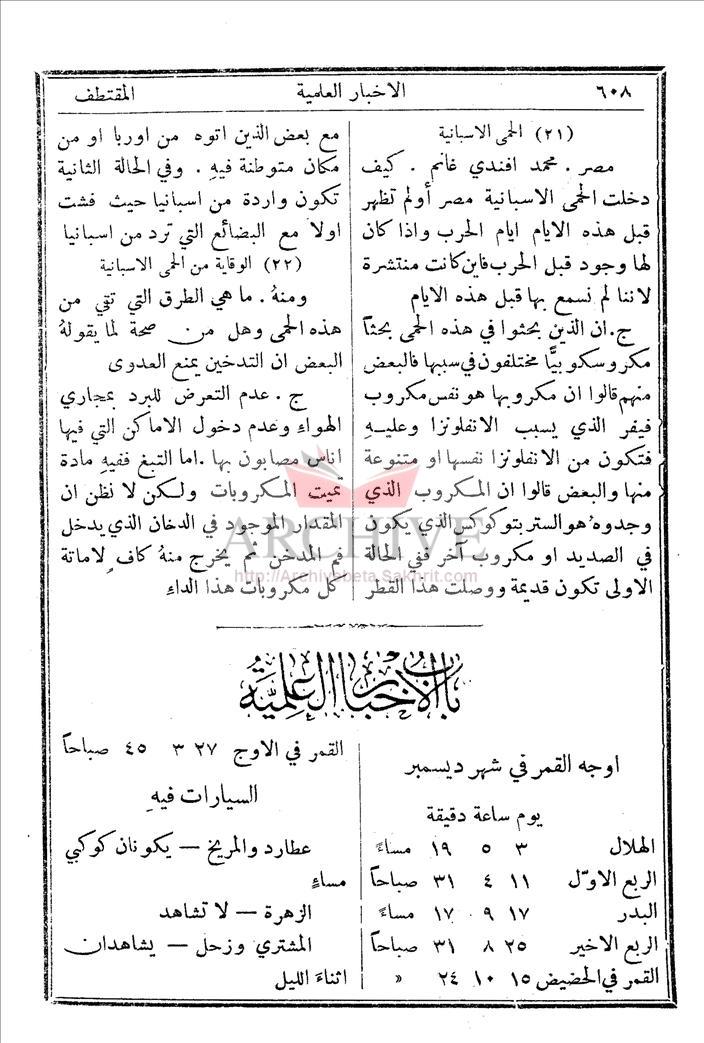 ٦٠٨ الاخبار العلمية المقتطف
(٢١) الحمى الاسبانية
مصر . محمد افندي غانم . كيف
دخلت الحمى الاسبانية مصر أولم تظهر
قبل هذه الايام ايام الحرب واذا كان
لها وجود قبل الحرب فاين كانت منتشرة
لاننا لم نسمع بها قبل هذه الايام
ج . ان الذين بحثوا في هذه الحمى بحثاً
مكروسكوبيًّا مختلفون في سببها فالبعض
منهم قالوا ان مكروبها هو نفس مكروب
فيفر الذي يسبب الانفلونزا وعليهِ
فتكون من الانفلونزا نفسها او متنوعة
منها والبعض قالوا ان المكروب الذي
وجدوهُ هو الستربتوكوكس الذي يكون
في الصديد او مكروب آخر ففي الحالة
الاولى تكون قديمة ووصلت هذا القطر
مع بعض الذين اتوه من اوربا او من
مكان متوطنة فيهِ . وفي الحالة الثانية
تكون واردة من اسبانيا حيث فشت
اولا مع البضائع التي ترد من اسبانيا
(٢٢) الوقاية من الحمى الاسبانية
ومنهُ . ما هي الطرق التي تقي من
هذه الحمى وهل من صحة لما يقولهُ
البعض ان التدخين يمنع العدوى
ج . عدم التعرض للبرد بمجاري
الهواء وعدم دخول الاماكن التي فيها
اناس مصابون بها . اما التبغ ففيهِ مادة
تميت المكروبات ولكن لا نظن ان
المقدار الموجود في الدخان الذي يدخل
فم المدخن ثم يخرج منهُ كافٍ لاماتة
كل مكروبات هذا الداء
ARCHIVE
http://Archivebeta.Sakhrit.com
باب الاخبار العلمية
اوجه القمر في شهر ديسمبر
يوم ساعة دقيقة
الهلال ٣ ٥ ١٩ مساءً
الربع الاوّل ١١ ٤ ٣١ صباحاً
البدر ١٧ ٩ ١٧ مساءً
الربع الاخير ٢٥ ٨ ٣١ صباحاً
القمر في الحضيض ١٥ ١٠ ٢٤ »
القمر في الاوج ٢٧ ٣ ٤٥ صباحاً
السيارات فيهِ
عطارد والمريخ — يكونان كوكبي
مساءٍ
الزهرة — لا تشاهد
المشتري وزحل — يشاهدان
اثناءَ الليل